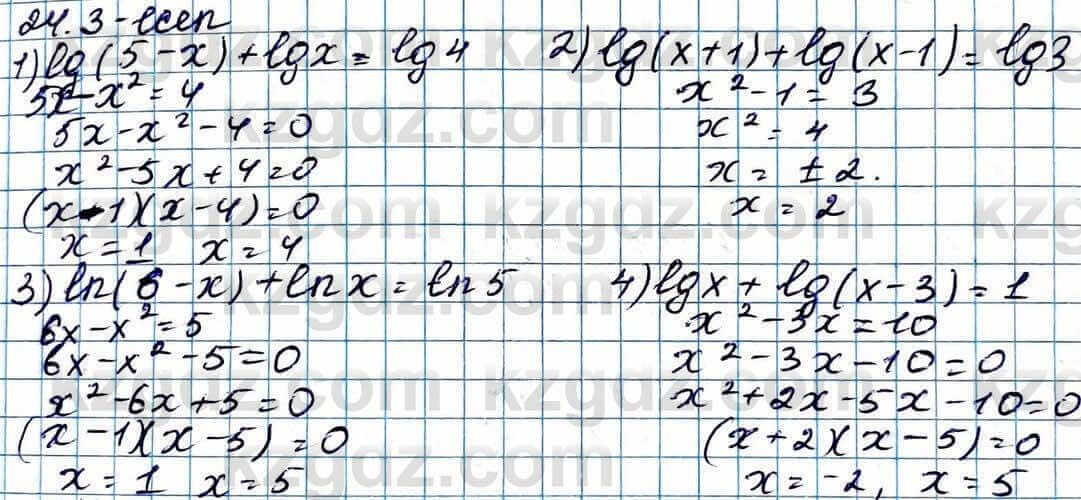 24.3-есеп
1) lg(5-x)+lgx = lg4
5x-x²=4
5x-x²-4=0
x²-5x+4=0
(x-1)(x-4)=0
x=1 x=4
2) lg(x+1)+lg(x-1)=lg3
x²-1=3
x²=4
x=±2.
x=2
3) ln(6-x)+lnx=ln5
6x-x²=5
6x-x²-5=0
x²-6x+5=0
(x-1)(x-5)=0
x=1 x=5
4) lgx+lg(x-3)=1
x²-3x=10
x²-3x-10=0
x²+2x-5x-10=0
(x+2)(x-5)=0
x=-2, x=5
kzgdz.com